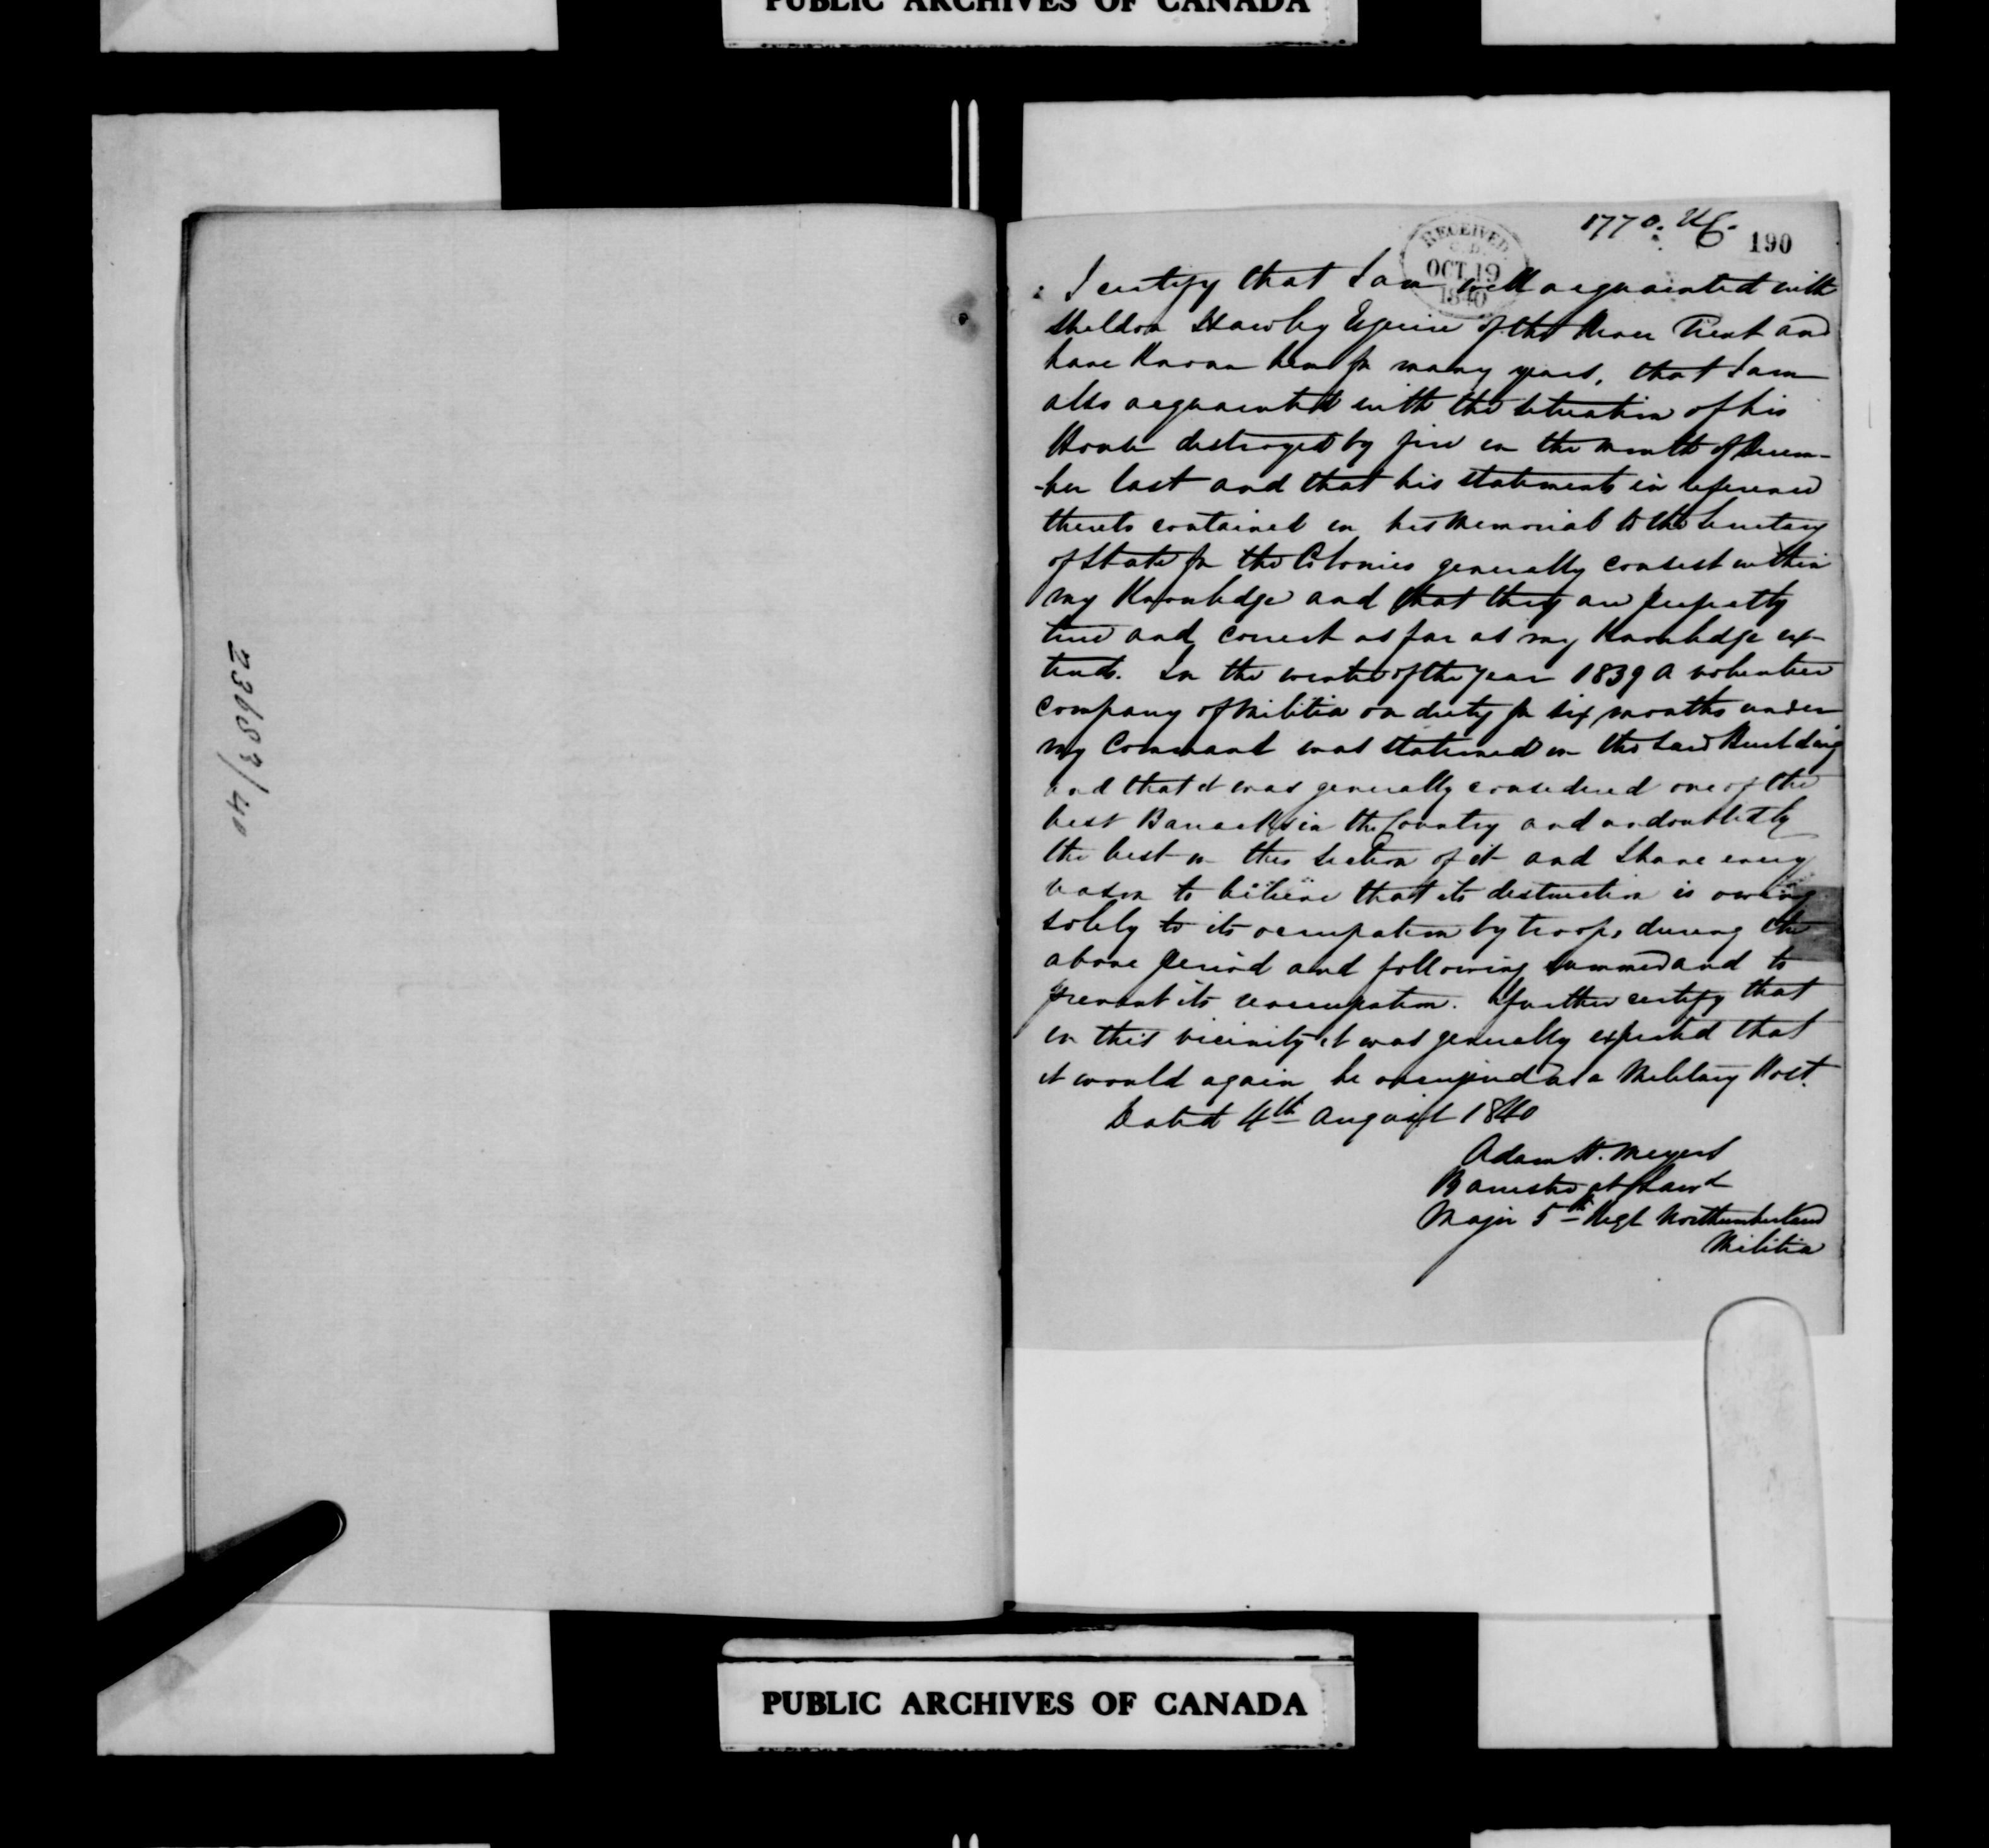 PUBLIC ARCHIVES OF CANADA
23603/40
1770. UC.
190
RECEIVED
C.D.
OCT 19
1840
I certify that I am well acquainted with
Sheldon Hawley Esquire of the River Trent and
have Known him for many years, that I am
also acquainted with the situation of his
House destroyed by fire in the month of Decem-
-ber last and that his statements in reference
thereto contained in his Memorial to the Secretary
of State for the Colonies generally consist within
my Knowledge and that they are perfectly
true and correct as far as my Knowledge ex-
tends. In the winter of the year 1839 a volunteer
company of Militia on duty for six months under
my Command was stationed in the said Building
and that it was generally considered one of the
best Barracks in the Country and undoubtedly
the best in this section of it and I have every
reason to believe that its destruction is owing
solely to its occupation by troops during the
above period and following summer and to
prevent its reoccupation. I further certify that
in this vicinity it was generally expected that
it would again be occupied as a Military Post.
Dated 4th August 1840
Adam H. Meyers
Barrister at Law &
Major 5th Regt Northumberland
Militia
PUBLIC ARCHIVES OF CANADA